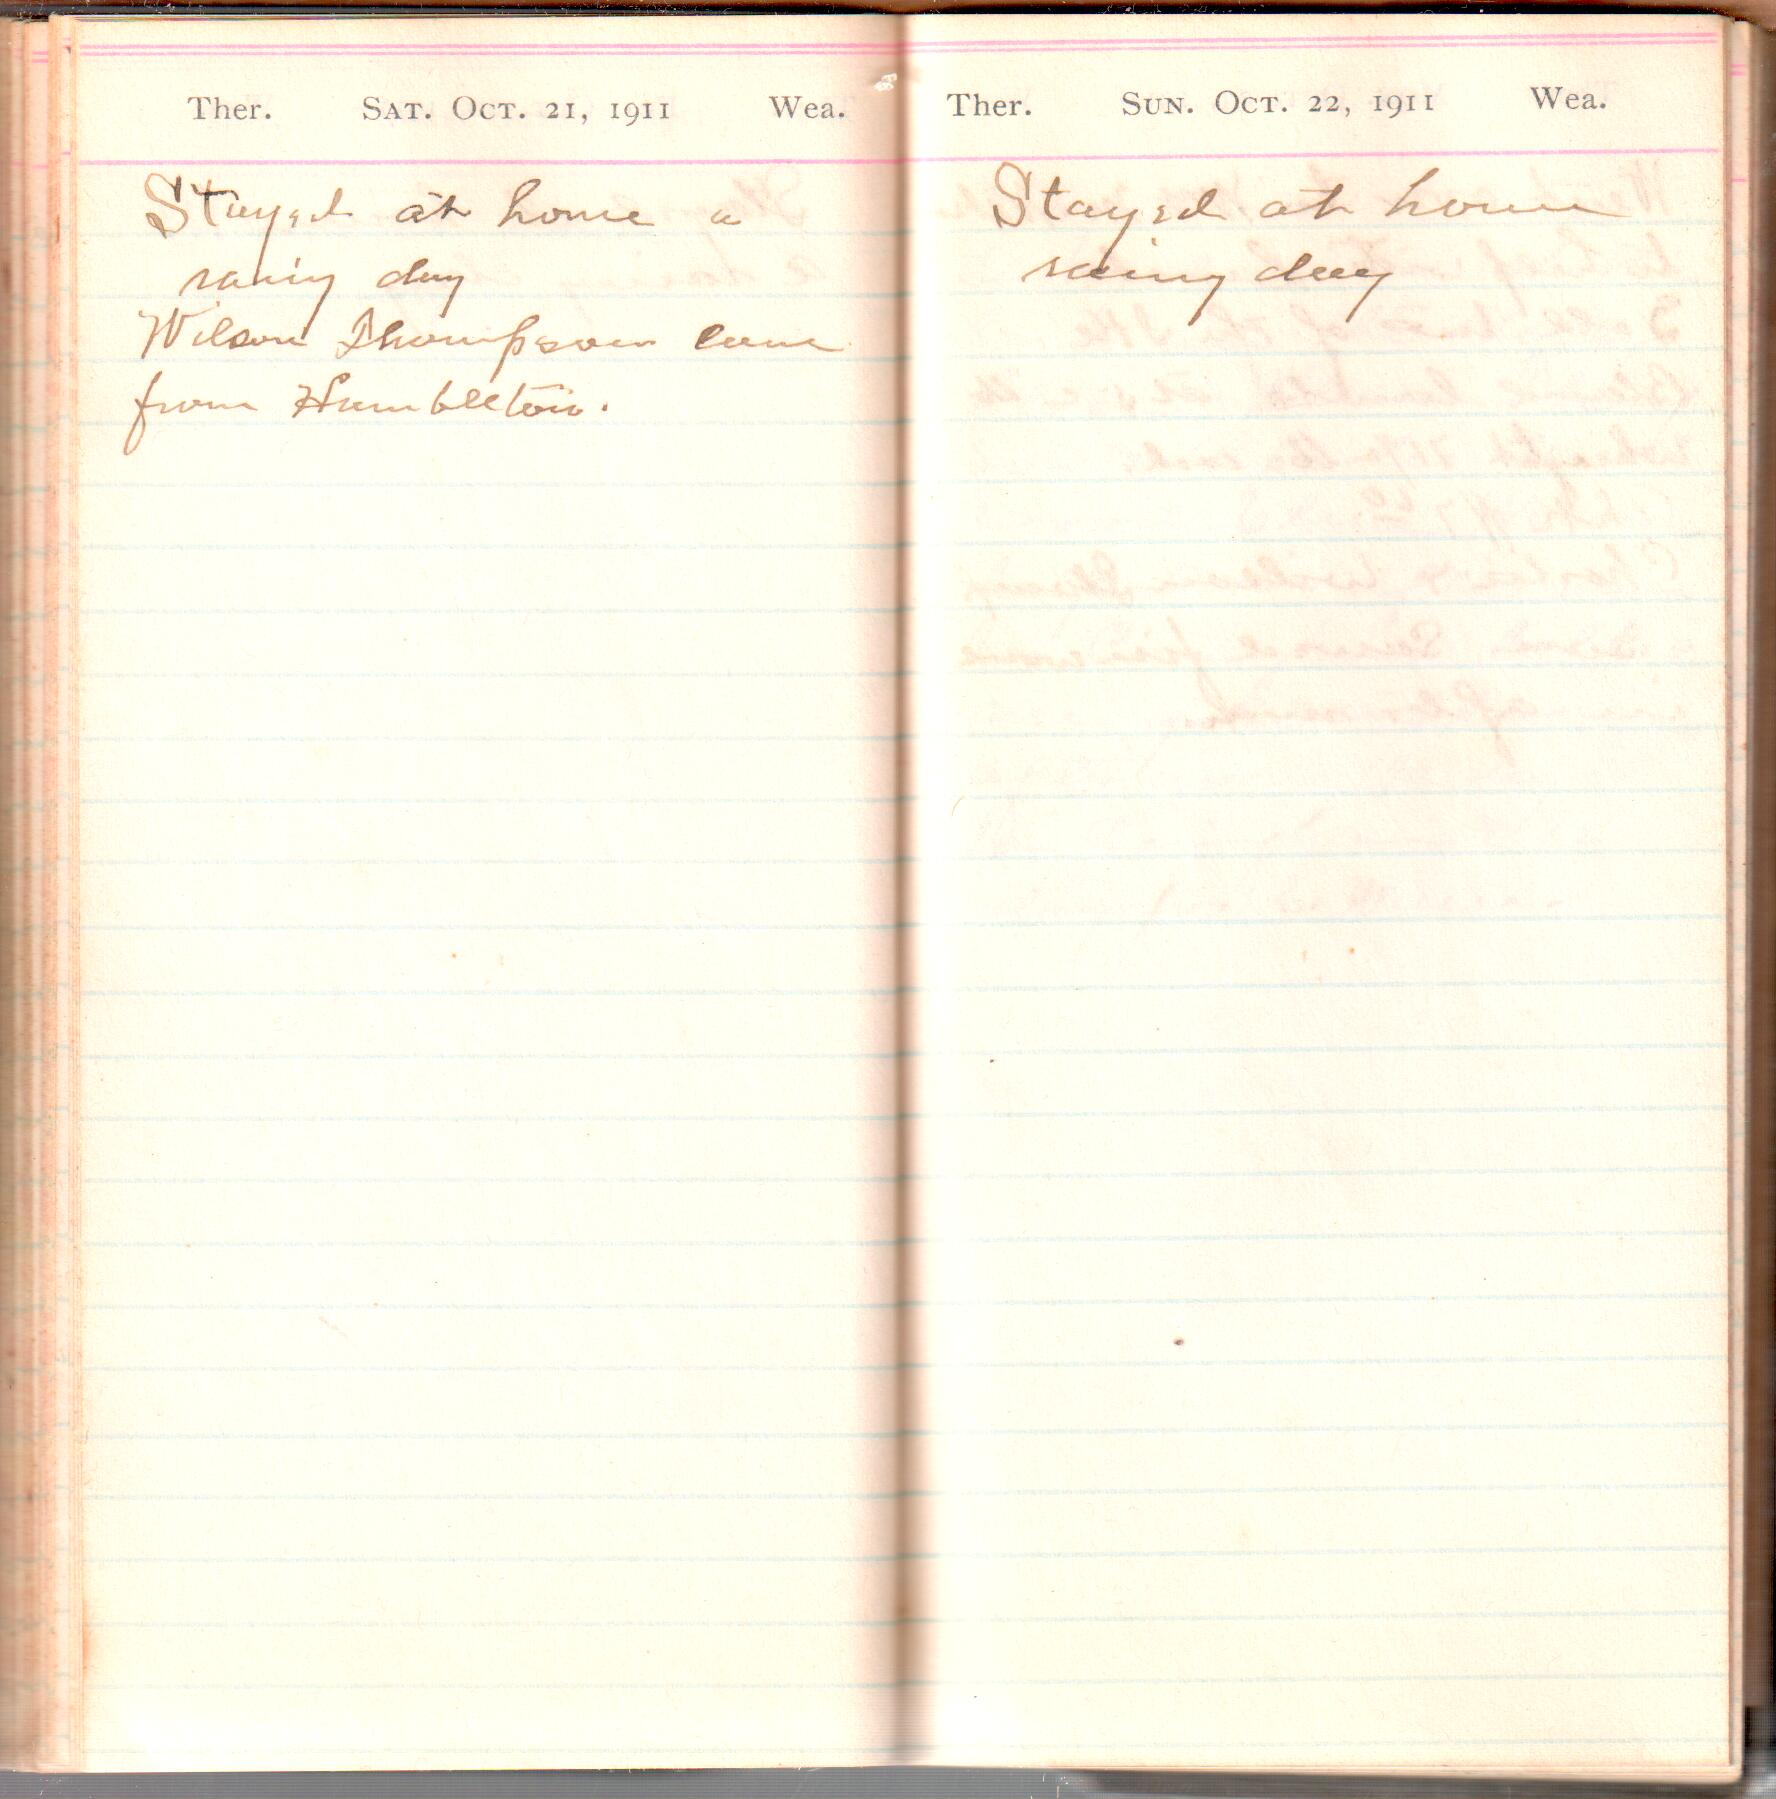 Ther. Sat. Oct. 21, 1911 Wea.
Stayed at home a
rainy day
Wilson Thompson came
from Humbleton.
Ther. Sun. Oct. 22, 1911 Wea.
Stayed at home
rainy day